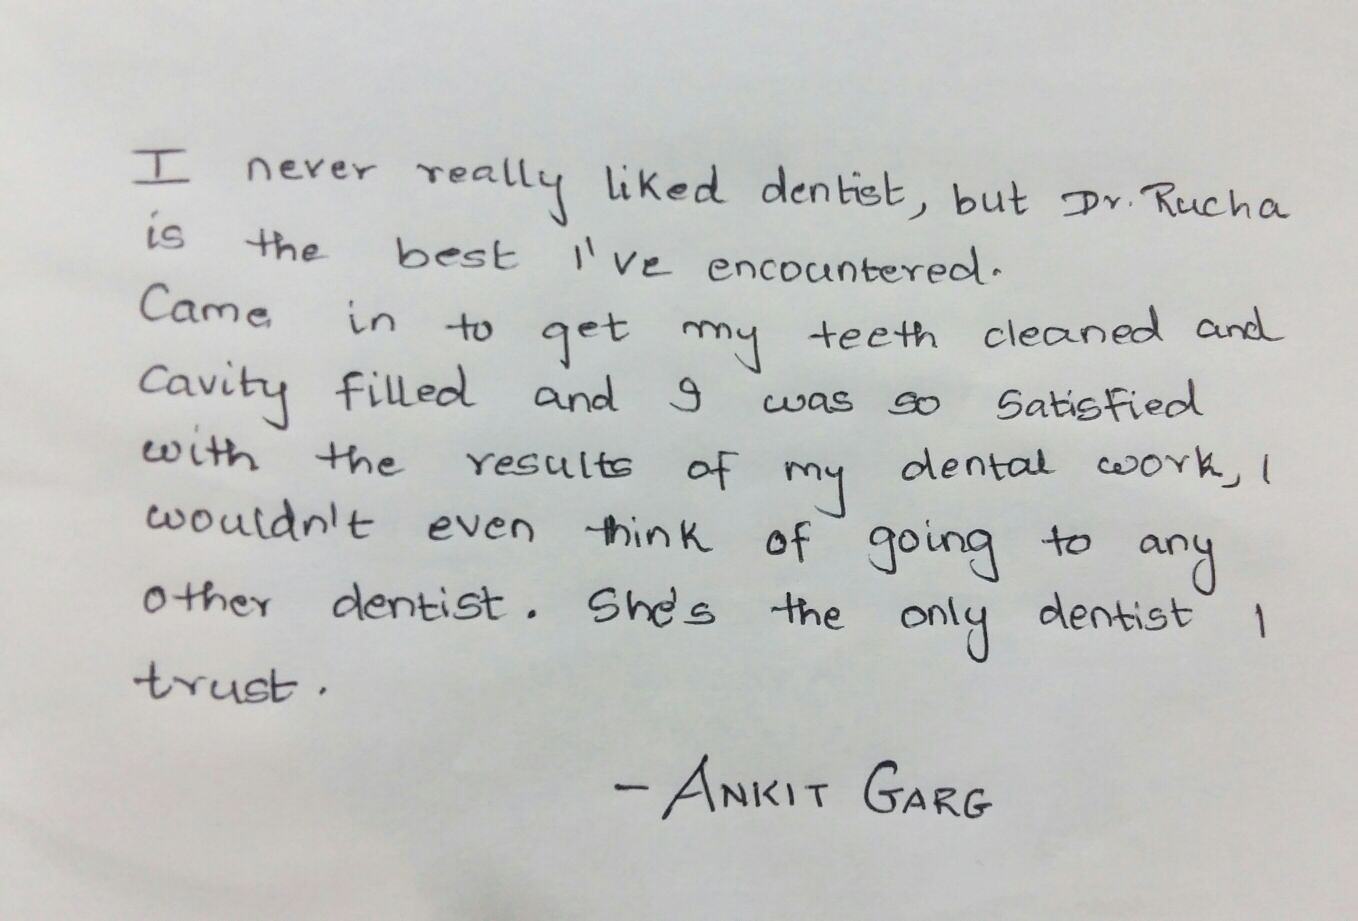 I never really liked dentist, but Dr. Rucha
is the best I've encountered.
Came in to get my teeth cleaned and
Cavity filled and I was so satisfied
with the results of my dental work, I
wouldn't even think of going to any
other dentist. She's the only dentist I
trust.
- ANKIT GARG